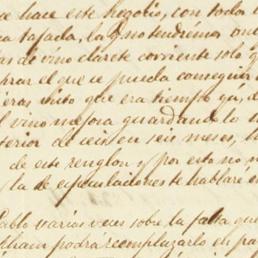 se hace este Negocio, con todos l
ca tajada, la q no tendremos on
as de vino clarete corriente solo q
trar el que se pueda conseguir
ieras visto que era tiempo ya, d
l vino mejora guardandolo
terior de seis en seis meses, la
de este renglon y por esto no
y la de especulaciones te hablaré e
Pablo varias veces sobre la falta que
lham podrá reemplazarlo en pa